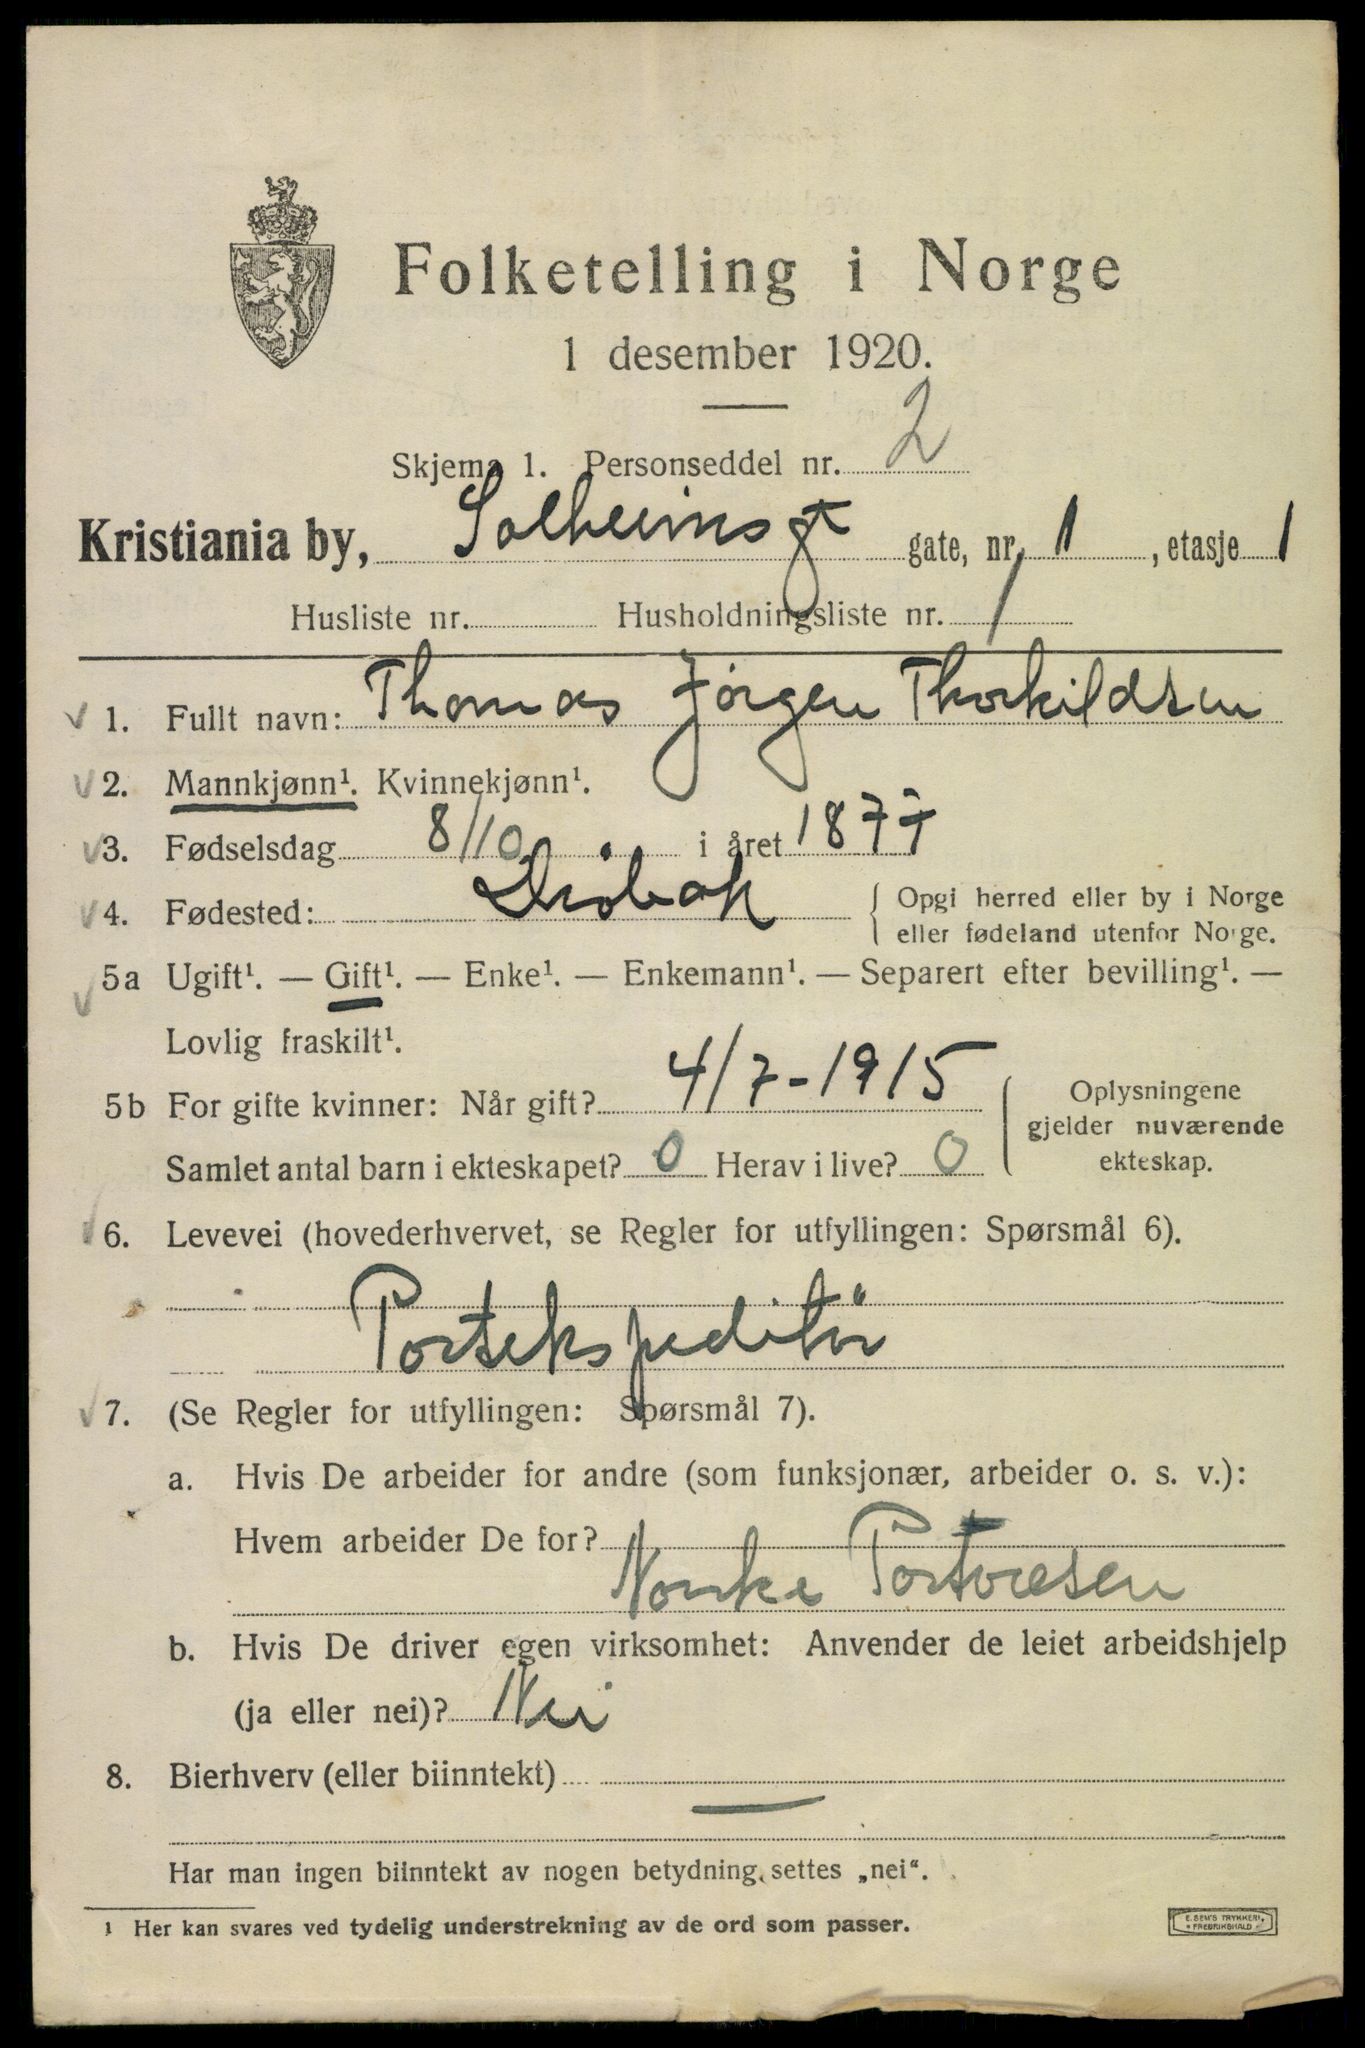 Folketelling i Norge
1 desember 1920.
Skjema 1. Personseddel nr. 2
Kristiania by, Solheimsgt gate, nr. 1, etasje 1
Husliste nr. Husholdningsliste nr. 1
1. Fullt navn: Thomas Jörgen Thorkildsen
2. Mannkjønn¹. Kvinnekjønn¹.
3. Fødselsdag 8/10 i året 1877
4. Fødested: Dröbak { Opgi herred eller by i Norge
eller fødeland utenfor Norge.
5a Ugift¹. — Gift¹. — Enke¹. — Enkemann¹. — Separert efter bevilling¹. —
Lovlig fraskilt¹.
5b For gifte kvinner: Når gift? 4/7-1915
Samlet antal barn i ekteskapet? 0 Herav i live? 0
Oplysningene
gjelder nuværende
ekteskap.
6. Levevei (hovederhvervet, se Regler for utfyllingen: Spørsmål 6).
Postekspeditör
7. (Se Regler for utfyllingen: Spørsmål 7).
a. Hvis De arbeider for andre (som funksjonær, arbeider o. s. v.):
Hvem arbeider De for?
Norske Postvæsen
b. Hvis De driver egen virksomhet: Anvender de leiet arbeidshjelp
(ja eller nei)? Nei
8. Bierhverv (eller biinntekt) —
Har man ingen biinntekt av nogen betydning, settes „nei“.
1 Her kan svares ved tydelig understrekning av de ord som passer.
E. SEM'S TRYKKERI,
FREDRIKSHALD